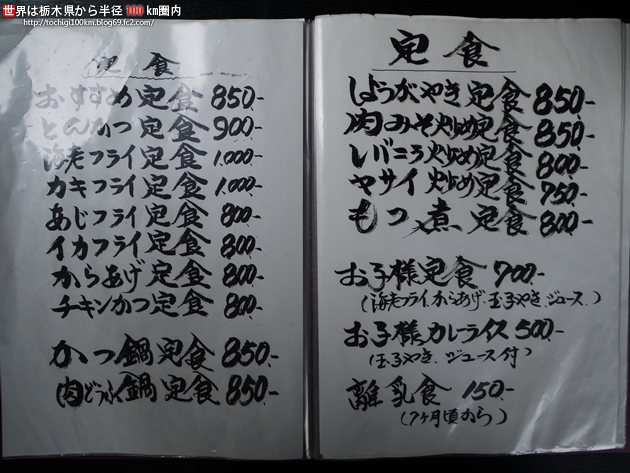 世界は栃木県から半径 100 km圏内
http://tochigi100km.blog69.fc2.com/
定食
おすすめ定食 850.-
とんかつ定食 900.-
海老フライ定食 1.000-
カキフライ定食 1.000-
あじフライ定食 800-
イカフライ定食 800-
からあげ定食 800-
チキンかつ定食 800-
かつ鍋定食 850.-
肉どうふ鍋定食 850.-
定食
しょうがやき定食 850.-
肉みそ炒め定食 850-
レバニラ炒め定食 800-
ヤサイ炒め定食 750-
もつ煮定食 800-
お子様定食 700.-
(海老フライ.からあげ.玉子やき.ジュース.)
お子様カレーライス 500.-
(玉子やき.ジュース付)
離乳食 150.-
(7ヶ月頃から)